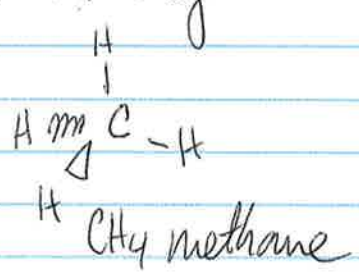 H
H C - H
H
CH4 methane